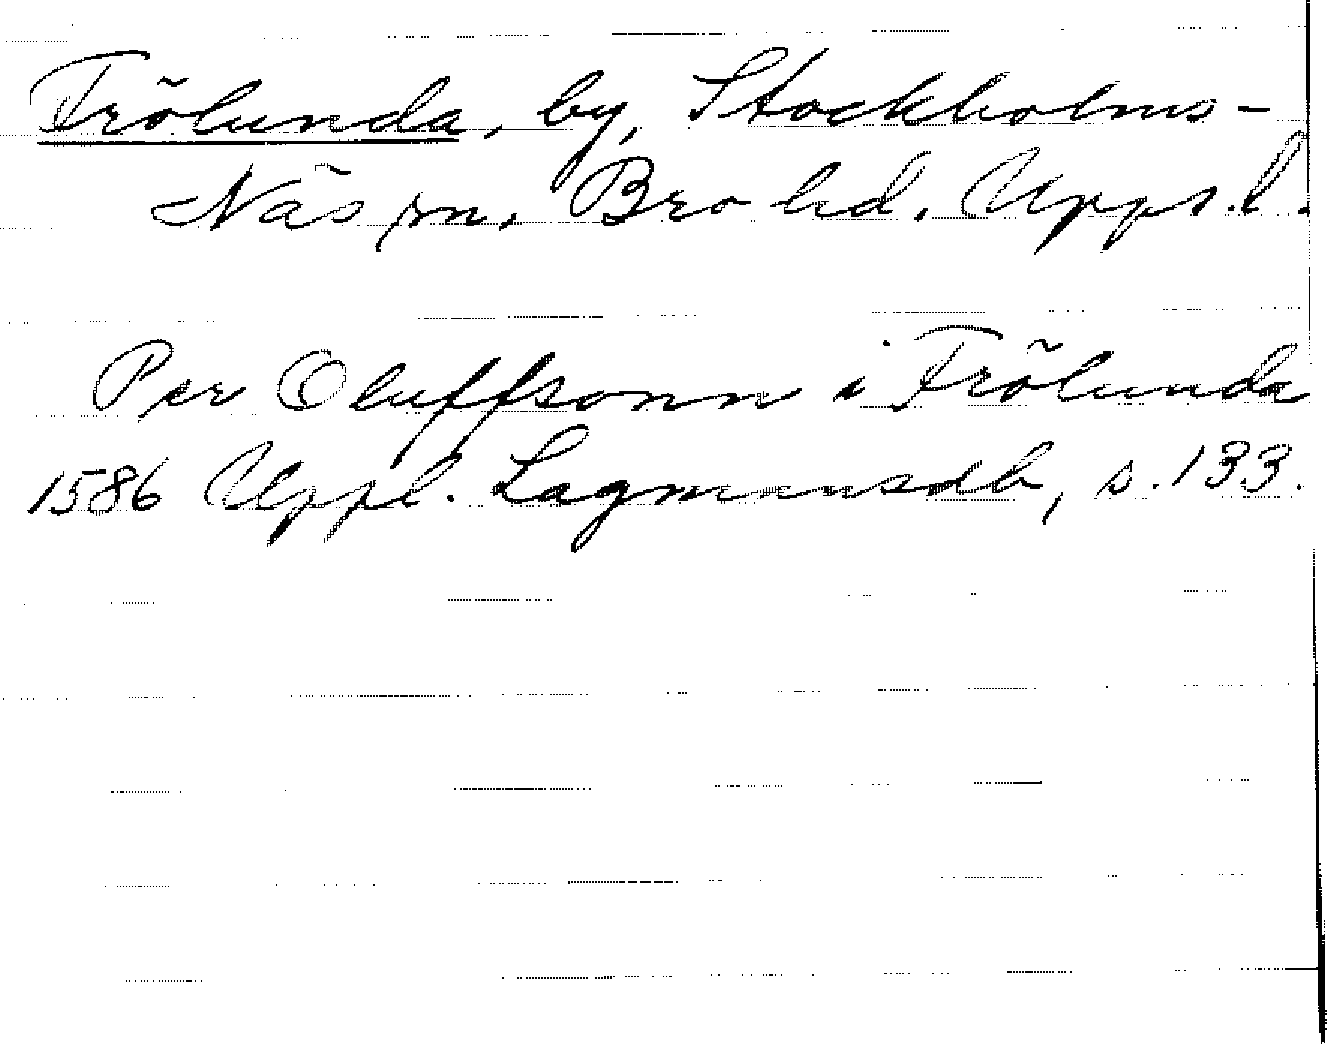 Frölunda, by, Stockholms-
Näs sn, Bro hd. Upps. l.
Per Oluffsonn i Frölunda
1586 Uppl. Lagmansdb, s. 133.